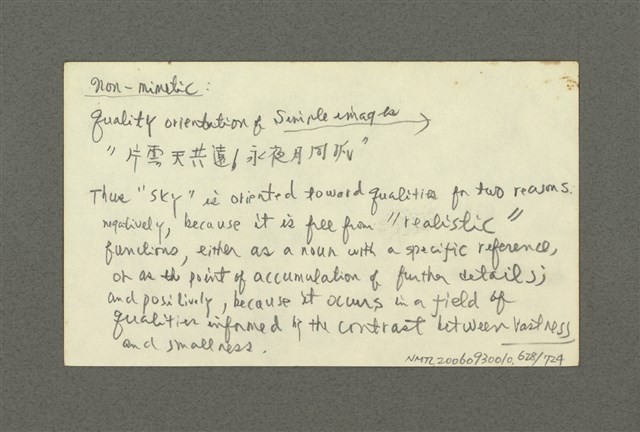 non-mimetic:
quality orientation of simple images →
"片雲天共遠/永夜月同孤"
Thus "sky" is oriented toward qualities for two reasons.
negatively, because it is free from "realistic"
functions, either as a noun with a specific reference,
or as the point of accumulation of further details;
and positively, because it occurs in a field of
qualities informed by the contrast between vastness
and smallness.
NMTL20060930010.628/724